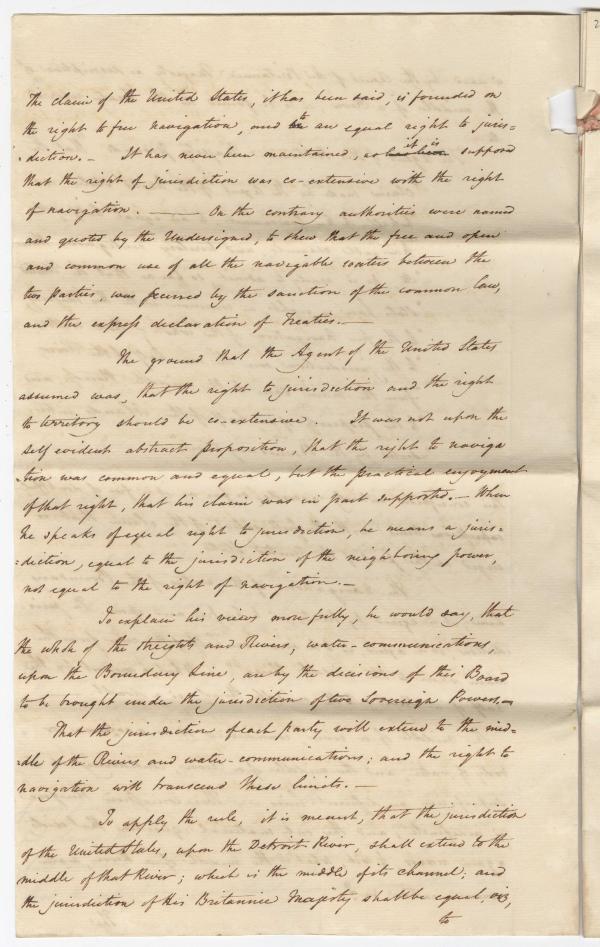 The claim of the United States, it has been said, is founded on
the right to free navigation, and to an equal right to juris=
-diction.- It has never been maintained, as it is supposed
that the right of jurisdiction was co-extensive with the right
of navigation. —— On the contrary authorities were named
and quoted by the Undersigned, to shew that the free and open
and common use of all the navigable waters between the
two parties, was secured by the sanction of the common law,
and the express declaration of Treaties.—
The ground that the Agent of the United States
assumed was, that the right to jurisdiction and the right
to territory should be co-extensive. It was not upon the
self evident abstract proposition, that the right to naviga
tion was common and equal, but the practical enjoyment
of that right, that his claim was in part supported.— When
he speaks of equal right to jurisdiction, he means a juris=
=diction, equal to the jurisdiction of the neighboring power,
not equal to the right of navigation.—
To explain his views more fully, he would say, that
the whole of the streights and Rivers, water-communications,
upon the Boundary Line, are by the decisions of this Board
to be brought under the jurisdiction of two Sovereign Powers.—
That the jurisdiction of each party will extend to the mid=
dle of the Rivers and water-communications; and the right to
navigation will transcend these limits.—
To apply the rule, it is meant, that the jurisdiction
of the United States, upon the Detroit River, shall extend to the
middle of that River; which is the middle of its channel; and
the jurisdiction of His Britannic Majesty shall be equal, viz,
to
2